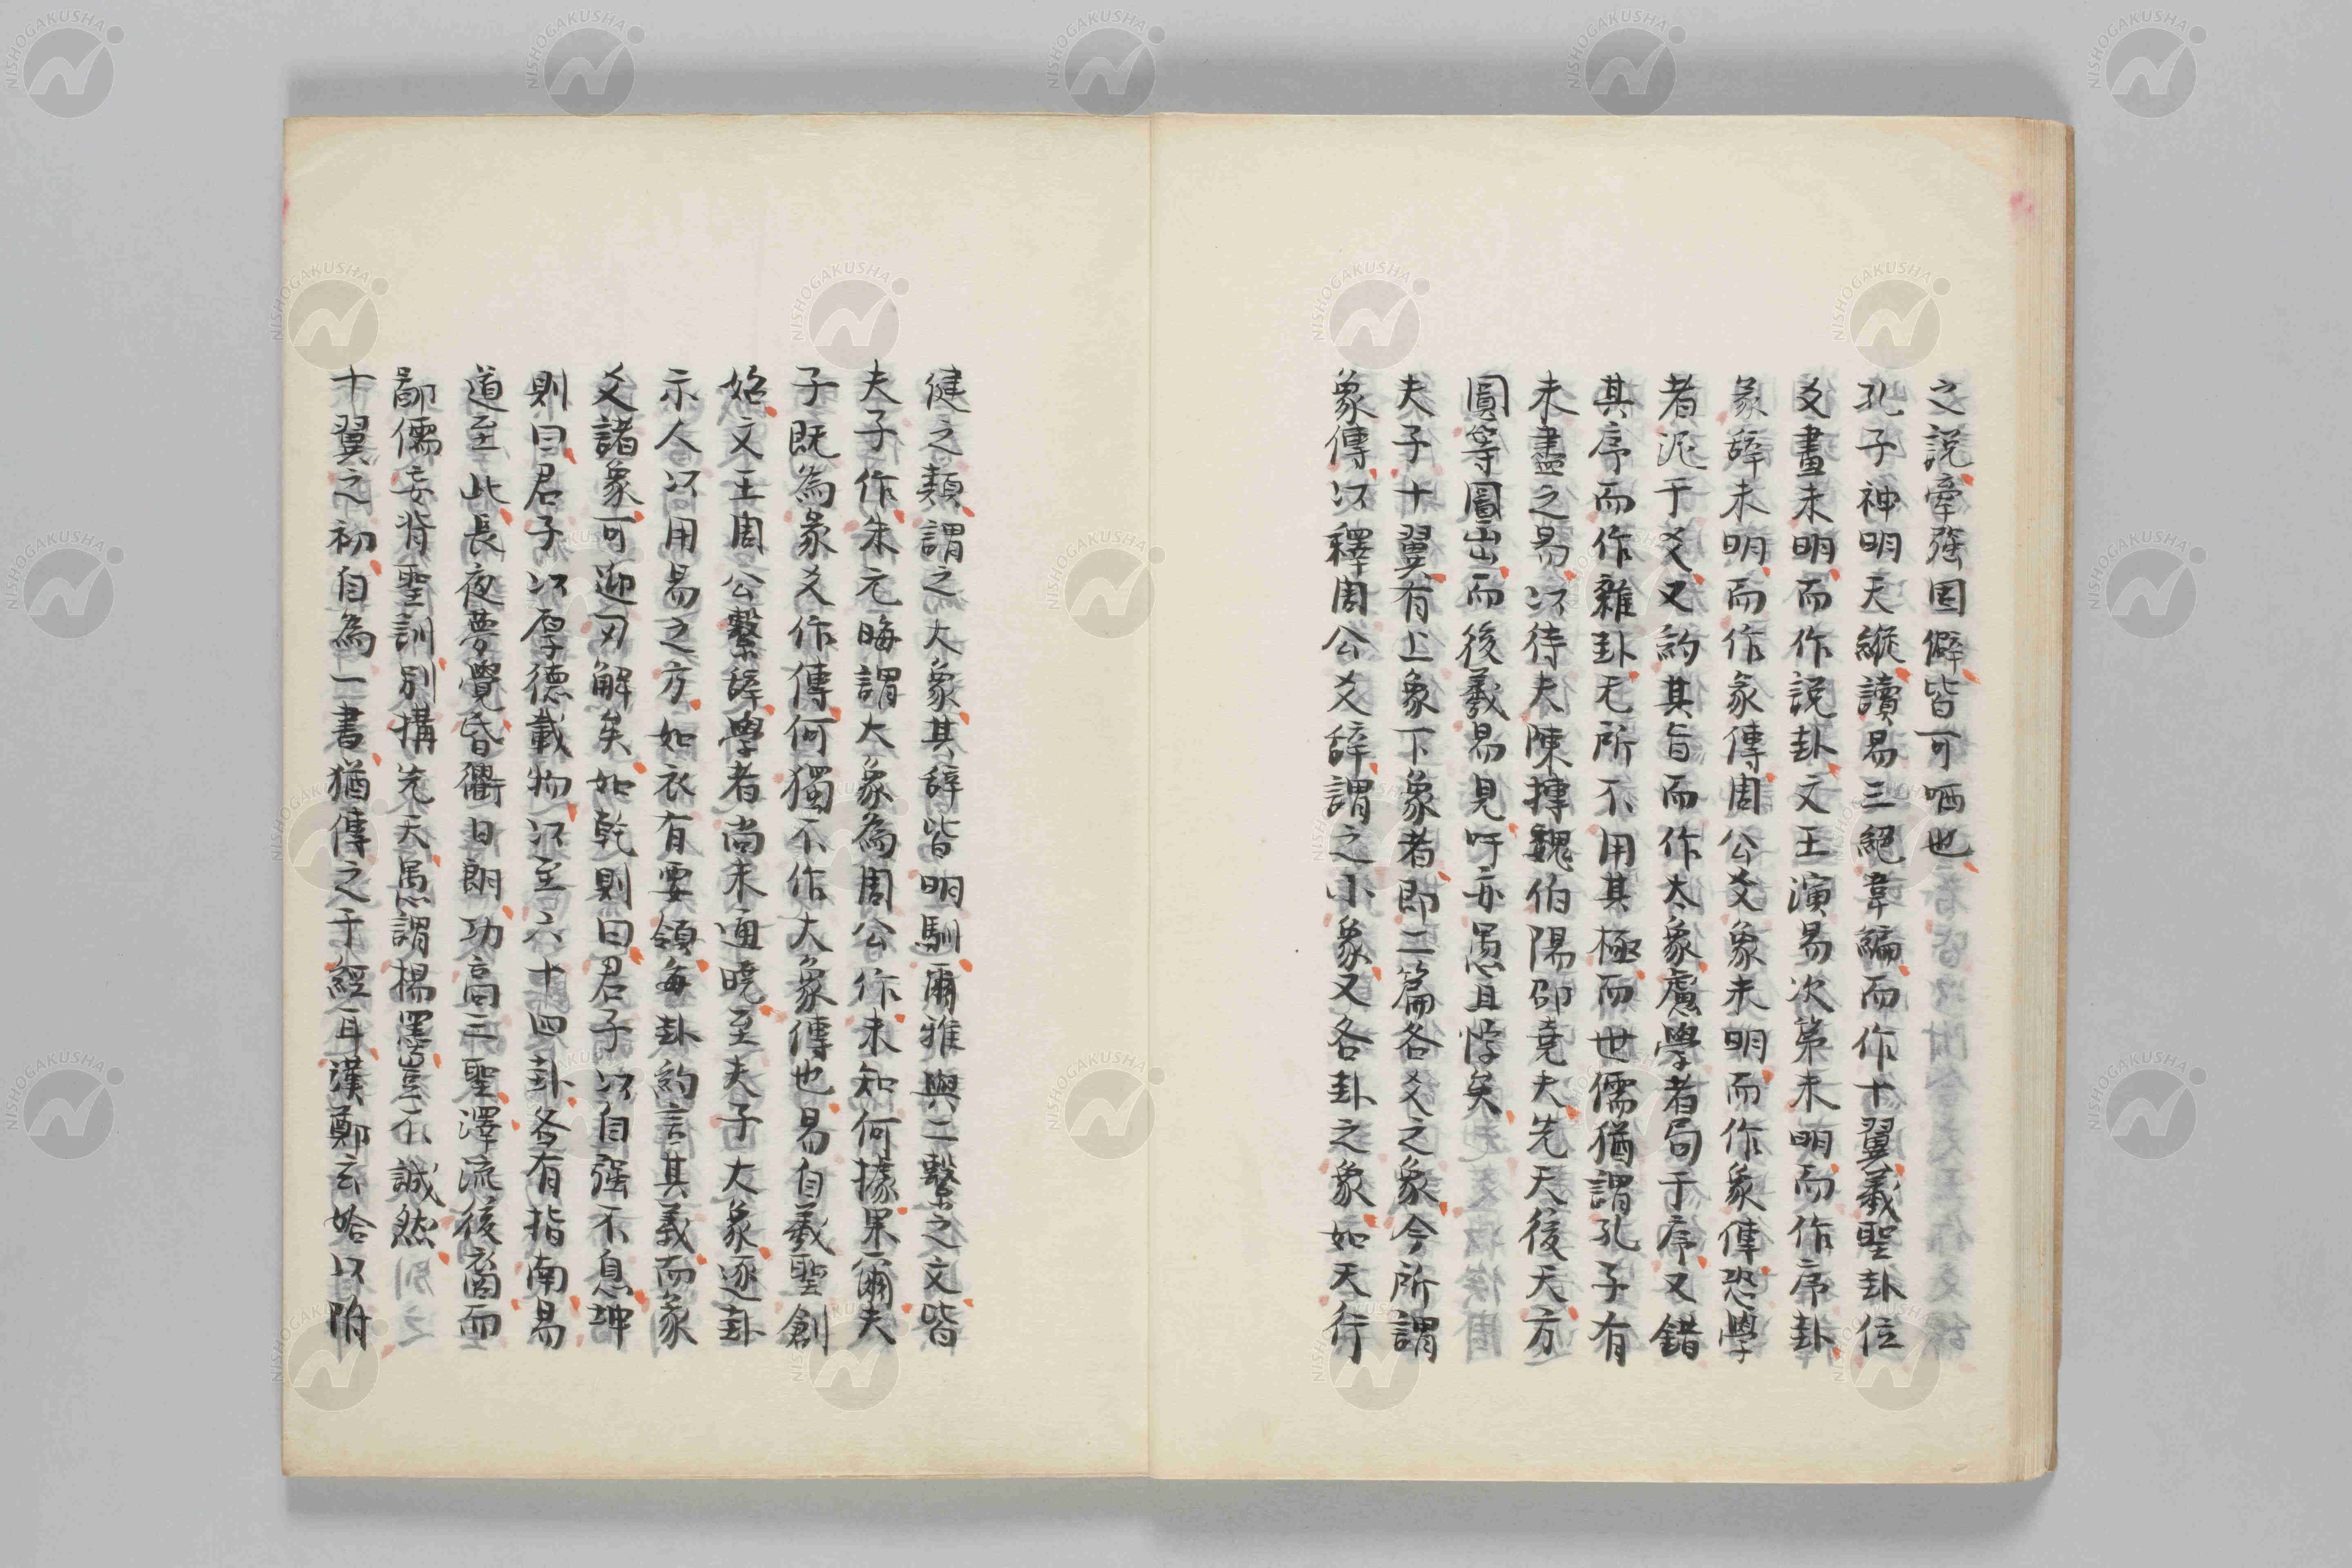 之說牽强固僻皆可哂也
孔子神明天縱讀易三絕韋編而作十翼羲聖卦位
爻畫未明而作說卦文王演易次第未明而作序卦
彖辭未明而作彖傳周公爻象未明而作象傳恐學
者泥于爻又約其旨而作大象慮學者局于序又錯
其序而作雜卦无所不用其極而世儒猶謂孔子有
未盡之易以待夫陳摶魏伯陽邵堯夫先天後天方
圓等圖出而後羲易見吁亦愚且悖矣
夫子十翼有上象下象者即二篇各爻之象今所謂
象傳以釋周公爻辭謂之小象又各卦之象如天行
健之類謂之大象其辭皆明馴爾雅與二繫之文皆
夫子作朱元晦謂大象為周公作未知何據果爾夫
子既為彖爻作傳何獨不作大象傳也易自羲聖創
始文王周公繫辭學者尚未通曉至夫子大象逐卦
示人以用易之方如衣有要領每卦約言其義而彖
爻諸象可迎刃解矣如乾則曰君子以自强不息坤
則曰君子以厚德載物以至六十四卦各有指南易
道至此長夜夢覺昏衢日朗功高三聖澤流後裔而
鄙儒妄背聖訓別搆先天愚謂楊墨豈不誠然
十翼之初自為一書猶傳之于經耳漢鄭玄始以附
NISHOGAKUSHA